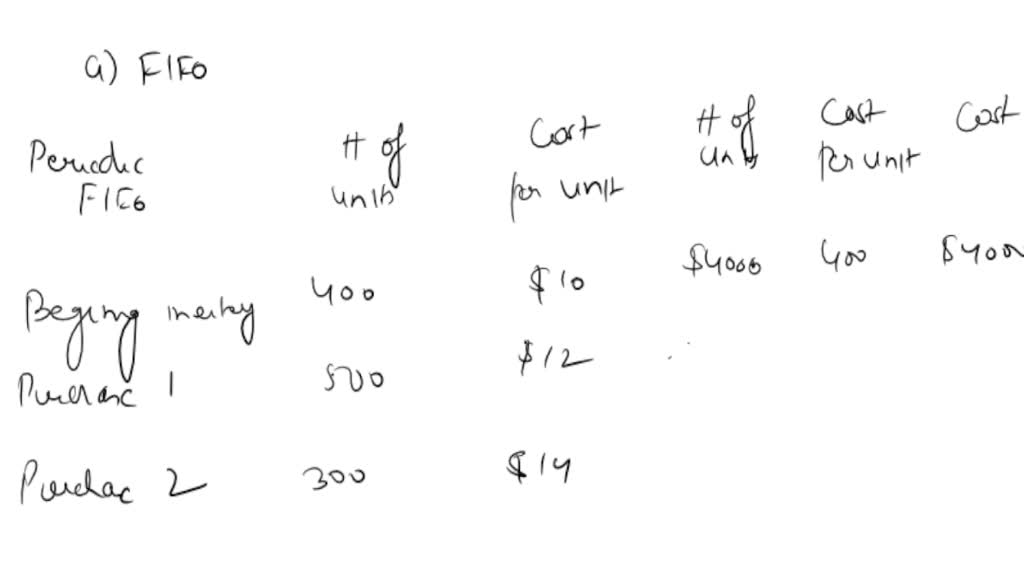 a) FIFO
Periodic # of Cost # of Cost Cost
FIFO units per unit units per unit
Beging 400 $10 $4000 400 $400
Purchase 1 500 $12
Purchac 2 300 $14